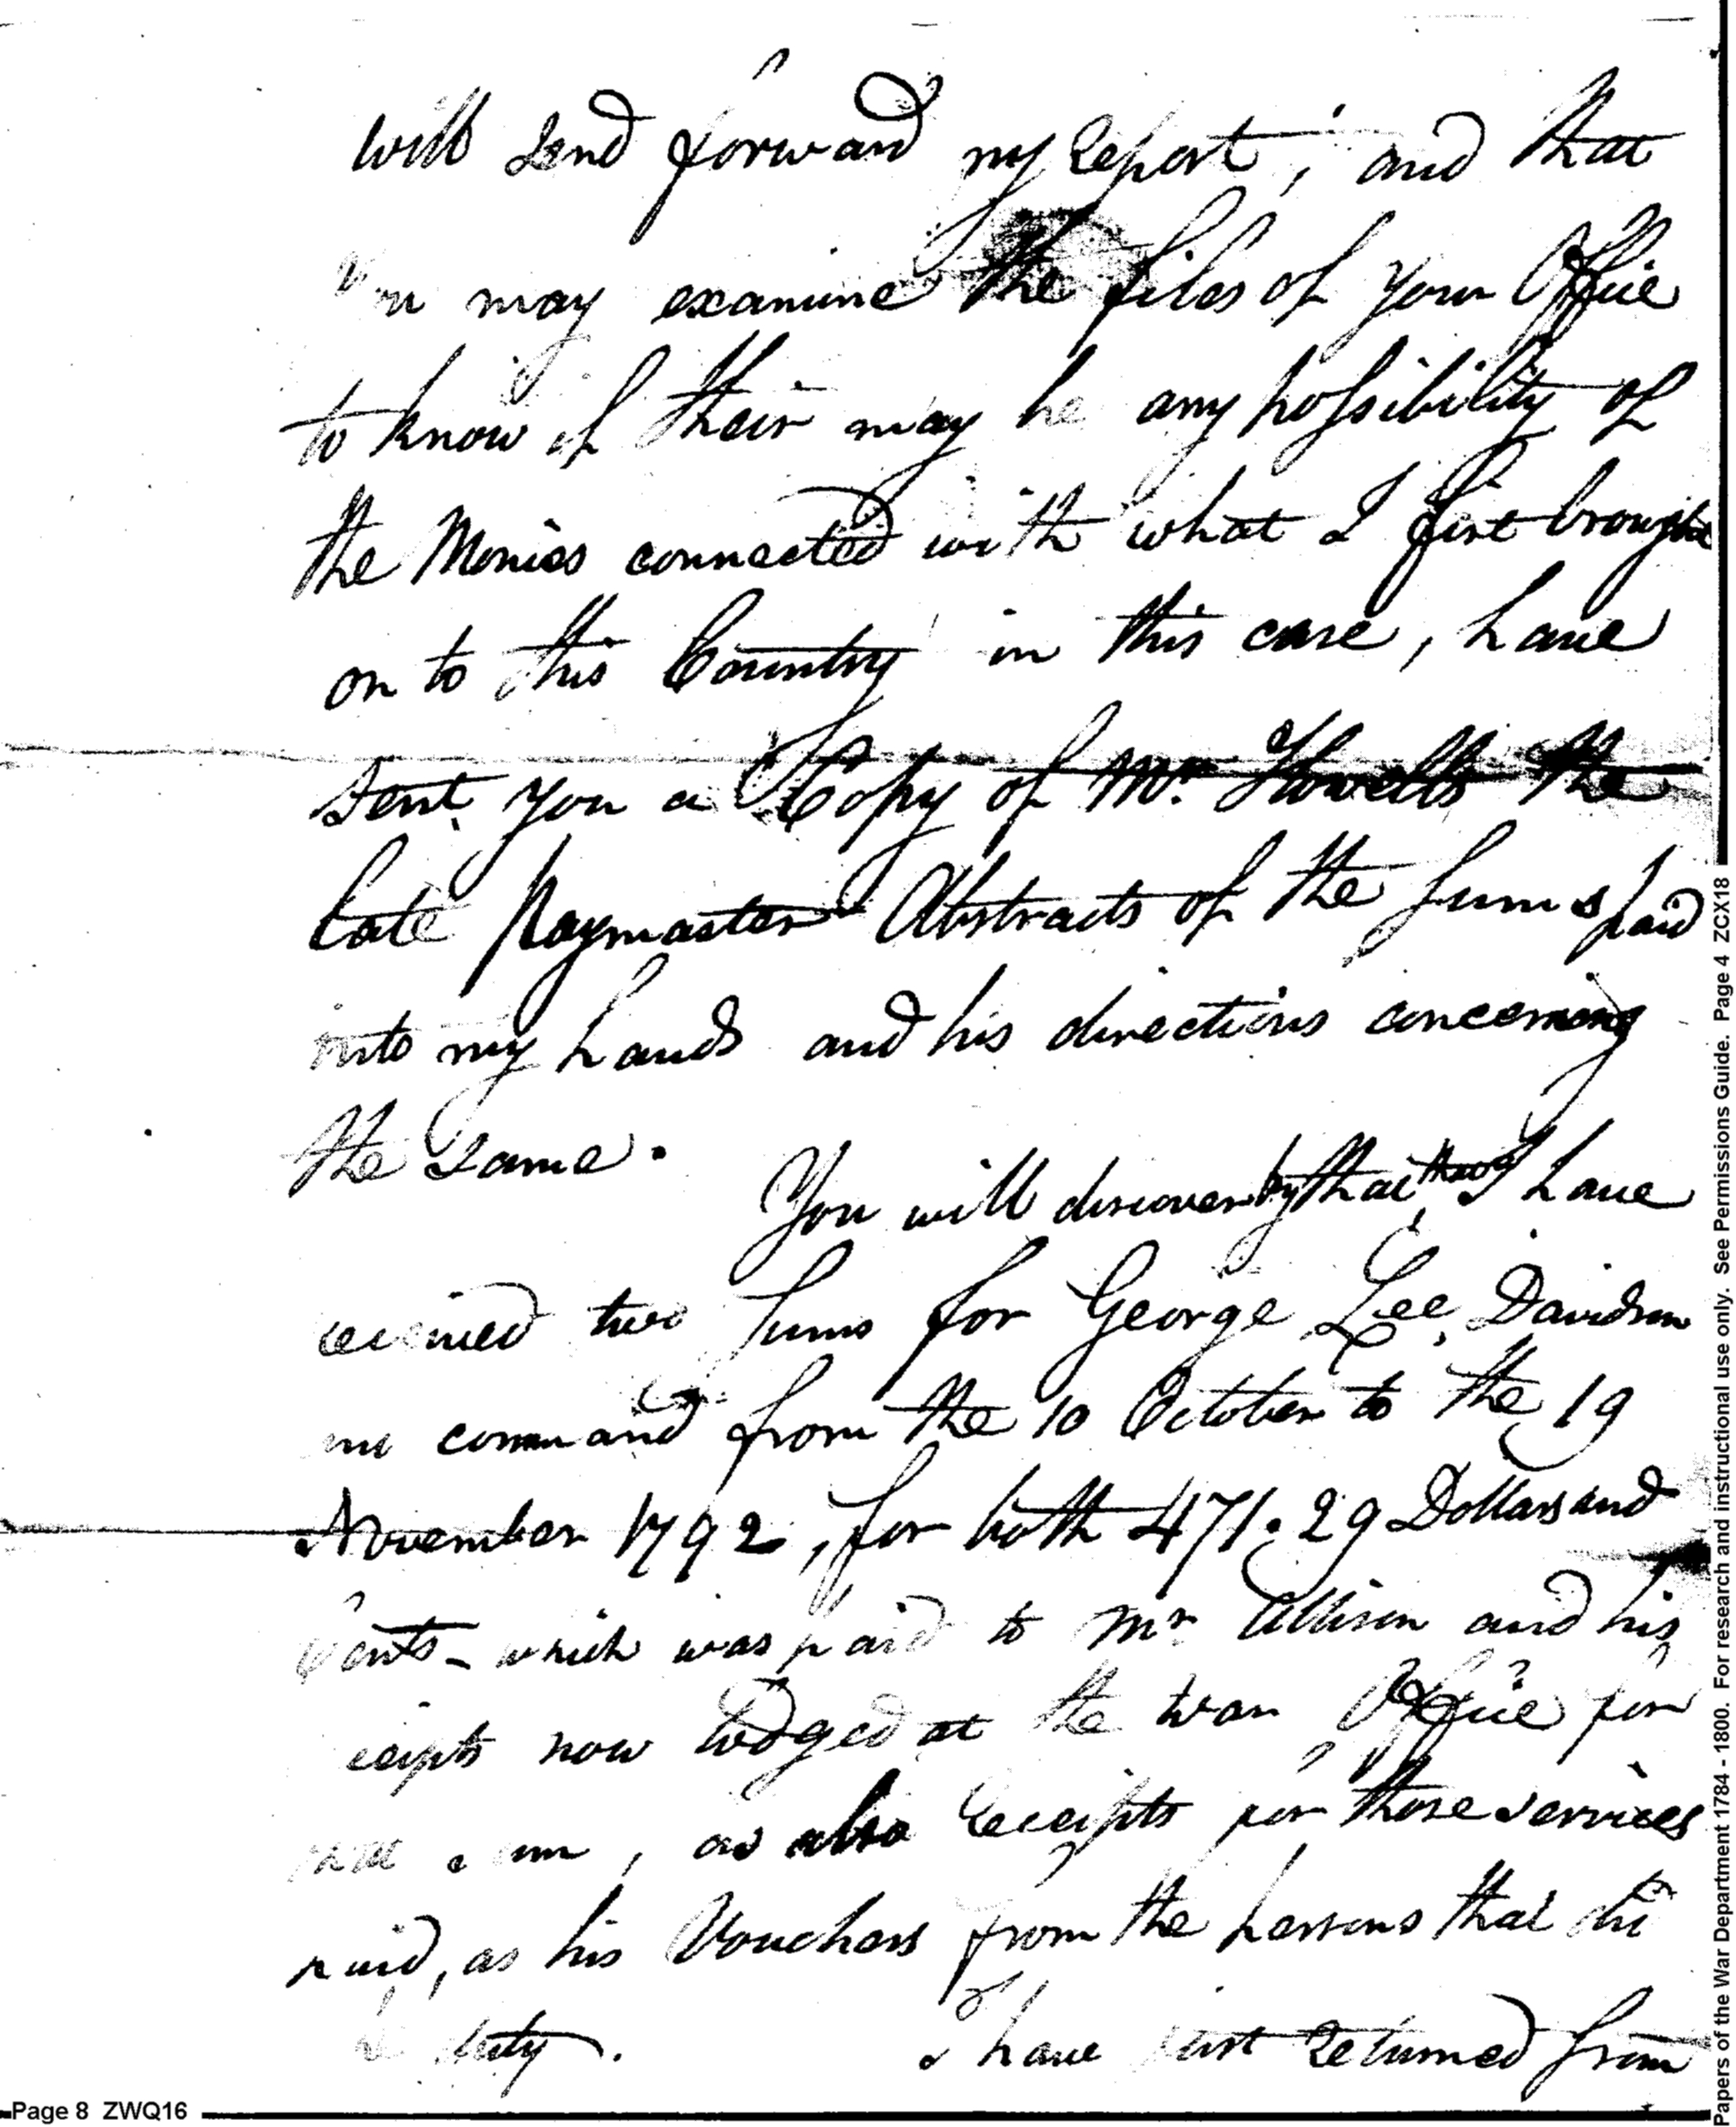 will Send forward my Report, and that
You may examine the files of your Office
to know if their may be any possibility of
the Monies connected with what I first brought
on to this Country in this case, have
Sent you a Copy of Mr. Howells the
late Paymaster Abstracts of the sums paid
into my hands and his directions concerning
the Same.
You will discover by that, that I have
received two Sums for George Lee Davidson
command from the 10 October to the 19
November 1792, for both 471.29 Dollars and
Cents - which was paid to Mr Allison and his
eceipts now lodged at the War Office for
sum, as also Receipts for those services
paid, as his Vouchers from the persons that did
duty. I have just Returned from
Page 8 ZWQ16
Papers of the War Department 1784 - 1800. For research and instructional use only. See Permissions Guide. Page 4 ZCX18